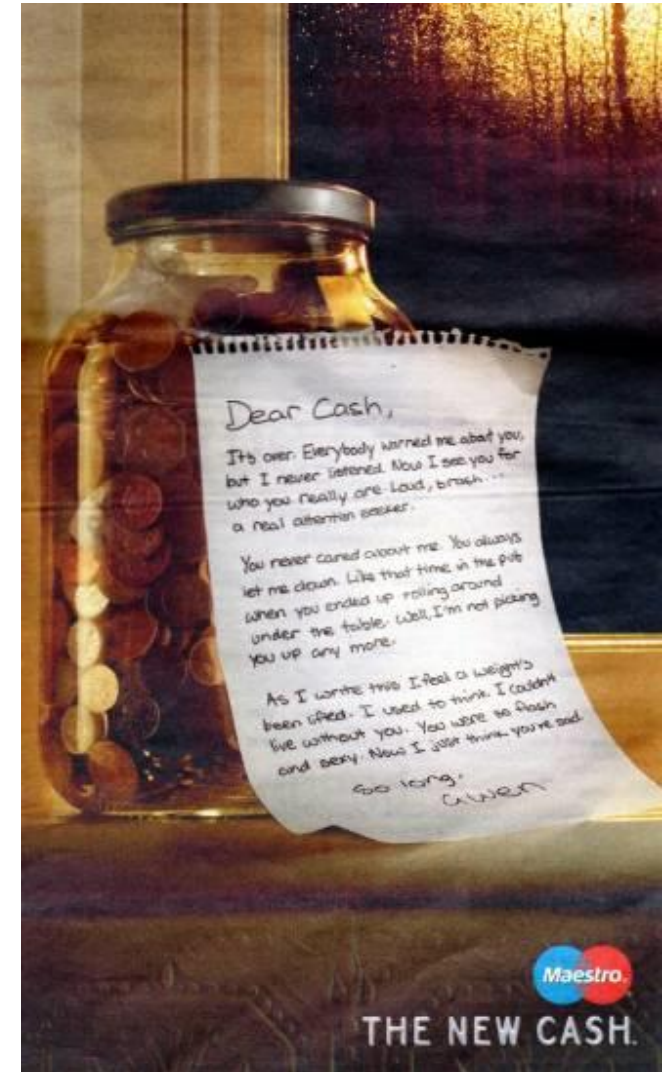 Dear Cash,
It's over. Everybody warned me about you,
but I never listened. Now I see you for
who you really are. Loud, brash...
a real attention seeker.
You never cared about me. You always
let me down. Like that time in the pub
when you ended up rolling around
under the table. Well, I'm not picking
you up any more.
As I write this I feel a weight's
been lifted. I used to think I couldn't
live without you. You were so flash
and sexy. Now I just think you're sad.
So long,
Gwen
Maestro
THE NEW CASH.